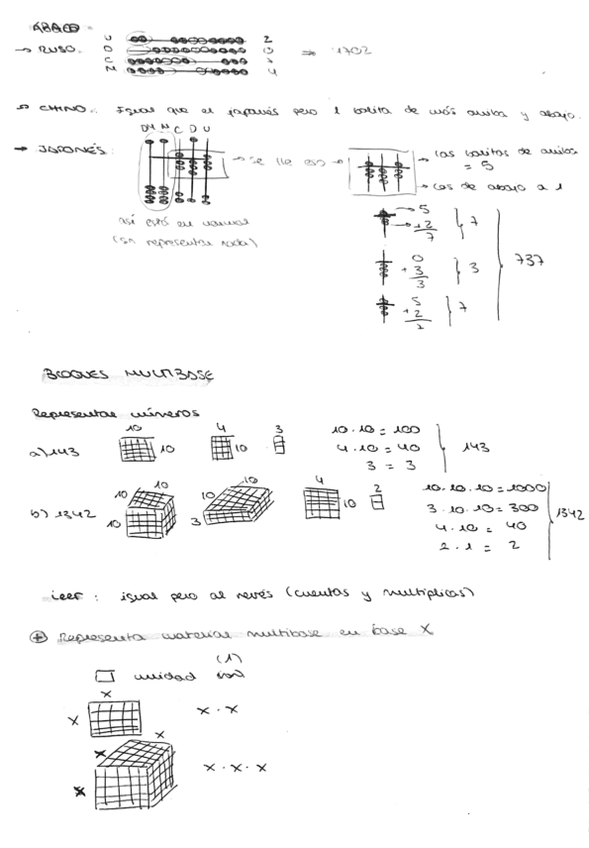 ÁBACO
→ RUSO. U 2
D 0
C
M
⇒ 1702
→ CHINO. Igual que el japonés pero 1 bolita de más arriba y abajo.
→ JAPONÉS: DM M C D U
→ Se lee así → las bolitas de arriba = 5
→ las de abajo a 1
así está en normal
(sin representar nada)
5
+2
7 } 7
0
+3
3 } 3
5
+2
7 } 7
737
BLOQUES MULTIBASE
Representar números
a) 143 10 10 4 10 3
10 · 10 = 100
4 · 10 = 40
3 = 3
143
b) 1342 10 10 10 10 10 3 4 10 2
10 · 10 · 10 = 1000
3 · 10 · 10 = 300
4 · 10 = 40
2 · 1 = 2
1342
Leer: igual pero al revés (cuentas y multiplicas)
+ Representa material multibase en base X
unidad (1)
x x x · x
x x x x · x · x